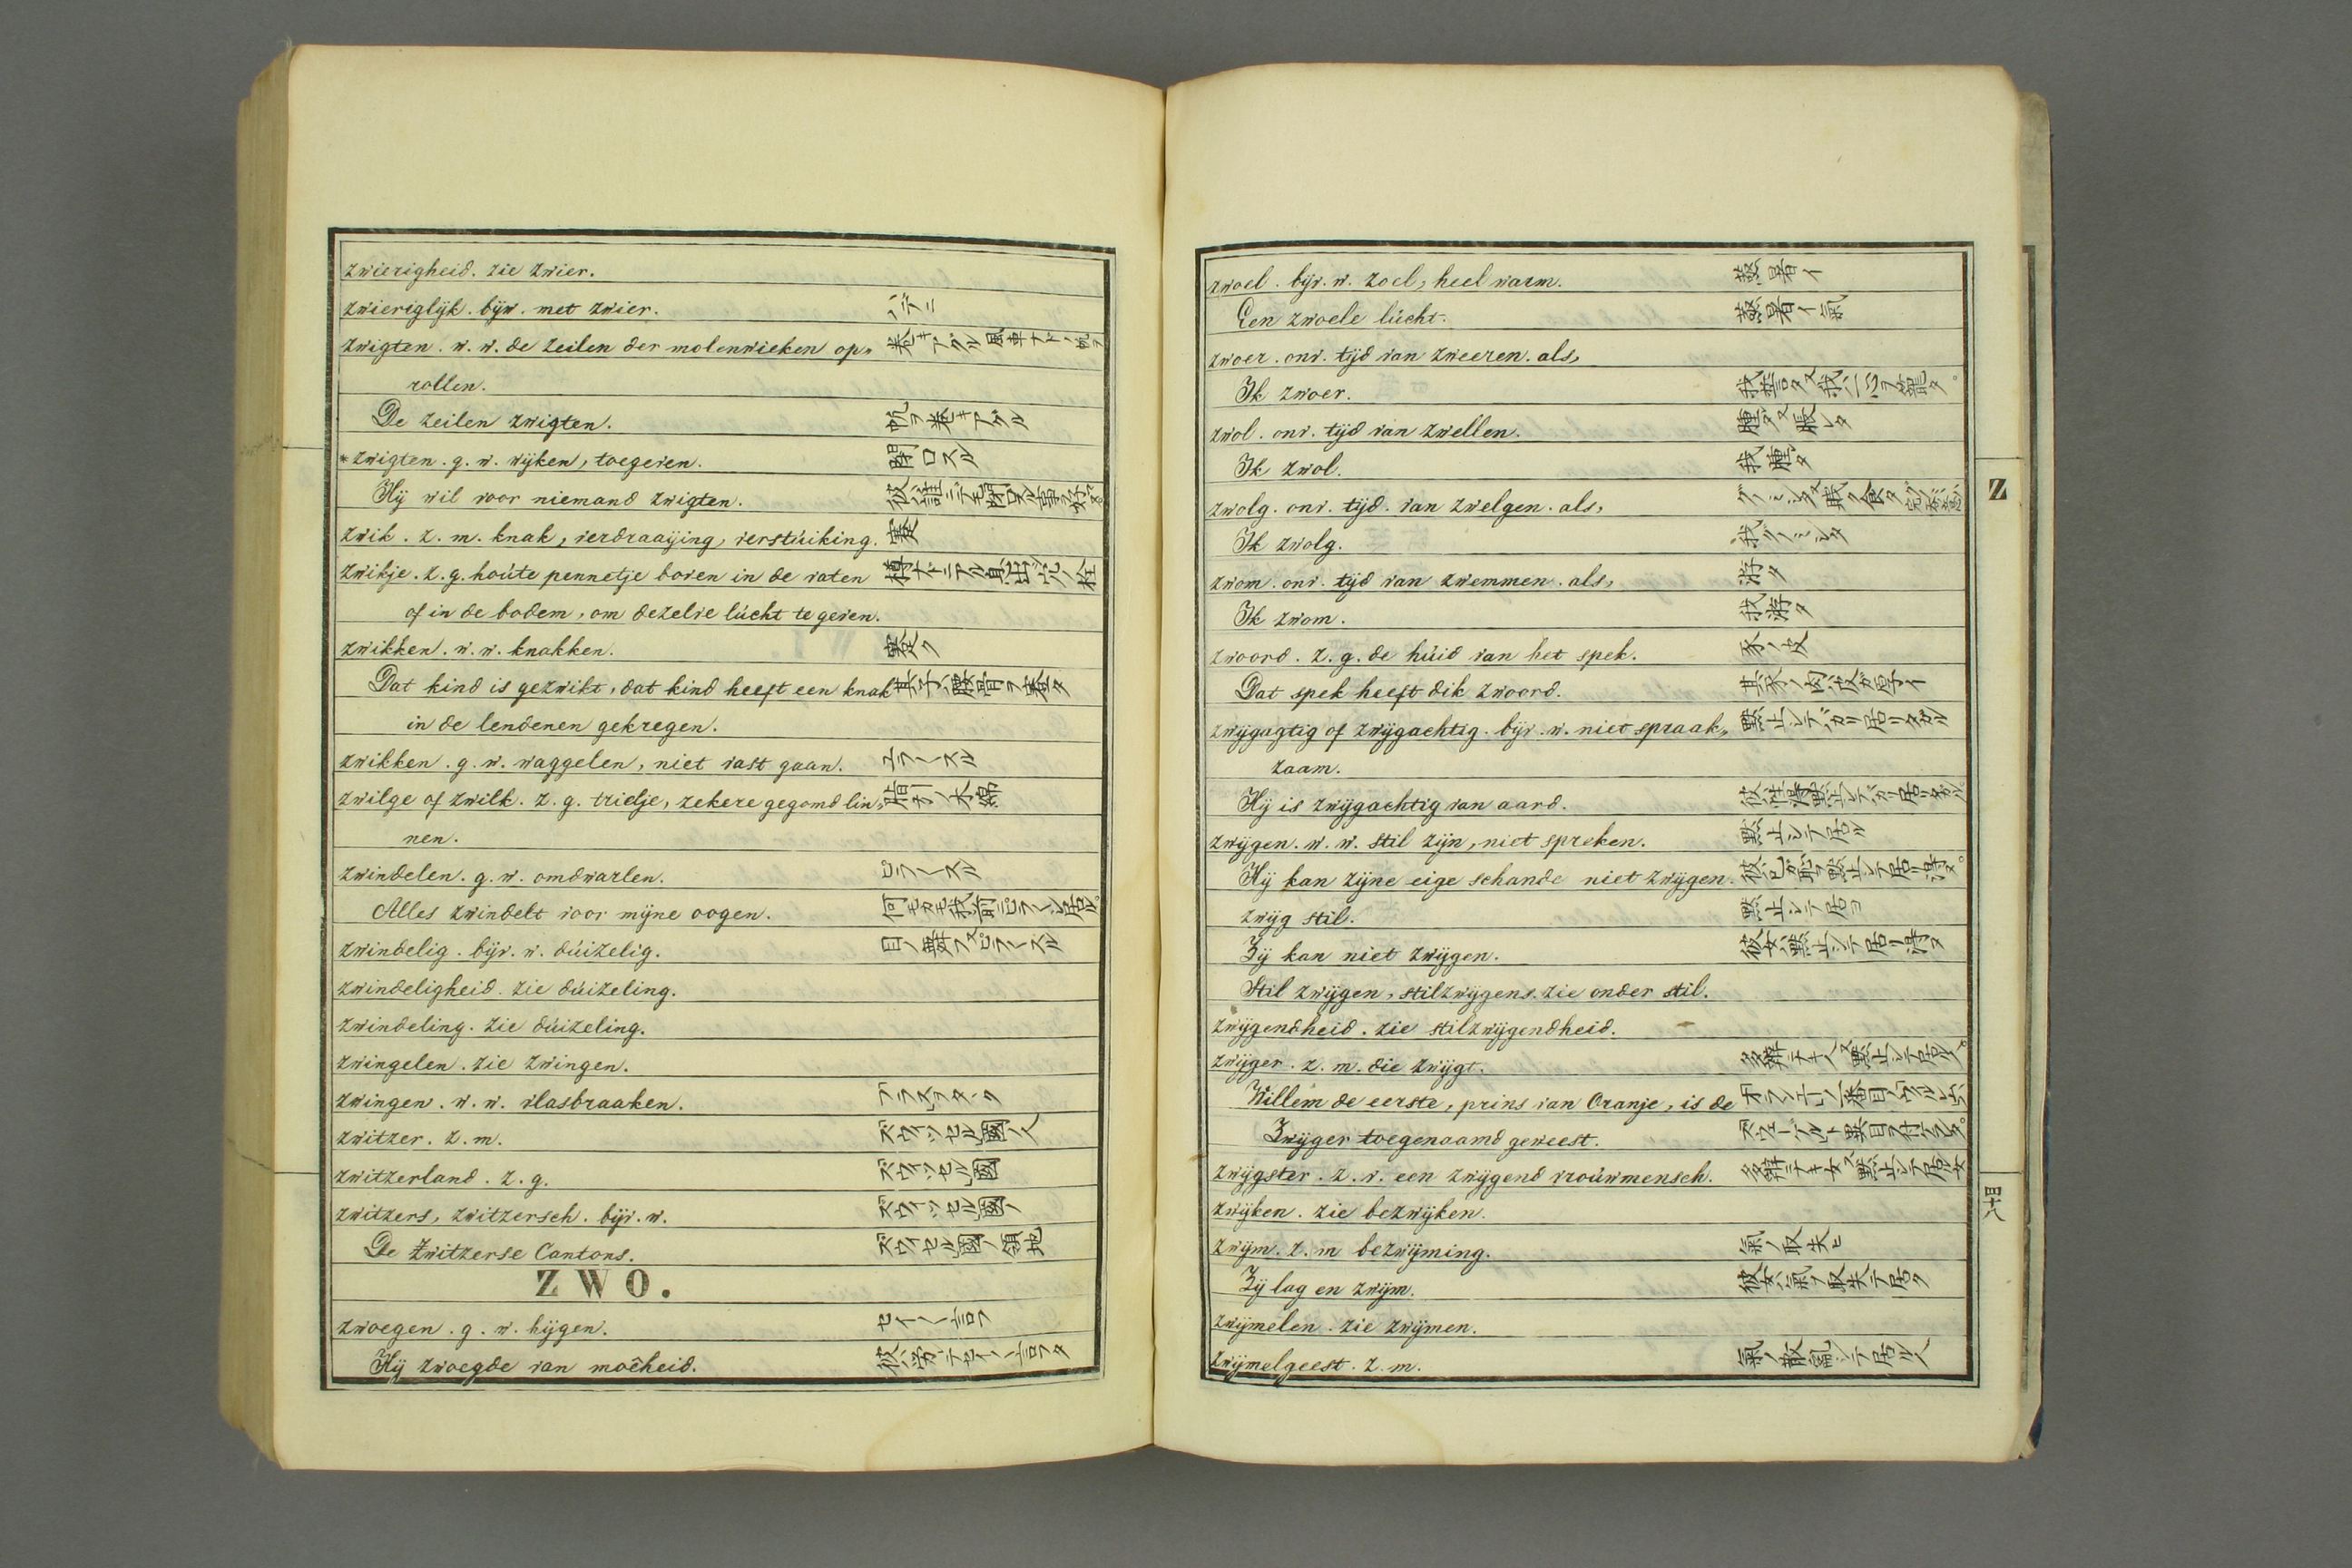 zwierigheid. zie zwier.
zwieriglyk. bijw. met zwier. ハデニ
zwigten. w. w. de zeilen der molenwieken op„ 巻キアグル 風車ナドノ帆ヲ
rollen.
De zeilen zwigten. 帆ヲ巻キアグル
*zwigten. g. w. wijken, toegeven. 閉口スル
Hij wil voor niemand zwigten.
zwik. z. m. knak, verdraaijing, verstúiking. 蹇
zwikje. z. g. hoúte pennetje boven in de vaten
of in de bodem, om dezelve lúcht te geven.
zwikken. w. w. knakken. 蹇ク
Dat kind is gezwikt, dat kind heeft een knak 其子ハ腰骨ヲ蹇タ
in de lendenen gekregen.
zwikken. g. w. waggelen, niet vast gaan.
zwilge of zwilk. z. g. trielje, zekere gegomd lin„
nen.
zwindelen. g. w. omdwarlen.
Alles zwindelt voor mijne oogen.
zwindelig. bijv. w. dúizelig.
zwindeligheid. zie dúizeling.
zwindeling. zie dúizeling.
zwingelen. zie zwingen.
zwingen. w. w. vlasbraaken.
zwitzer. z. m. ズウイッセル國ノ人
zwitzerland. z. g. ズウイッセル國
zwitzers, zwitzersch. bijv. w. ズウイッセル國ノ
De Zwitzerse Cantons. ズウイセル國ノ領地
ZWO.
zwoegen. g. w. hijgen.
Hij zwoegde van moêheid.
zwoel. bijv. w. zoel, heel warm. 蒸暑イ
Een zwoele lúcht. 蒸暑イ氣
zwoer. onv. tijd van zweeren. als,
Ik zwoer.
zwol. onv. tijd van zwellen. 腫タ又脹レタ
Ik zwol. 我腫タ
zwolg. onv. tijd. van zwelgen. als,
Ik zwolg. 我グノミシタ
zwom. onv. tijd van zwemmen. als, 游タ
Ik zwom. 我游タ
zwoord. z. g. de húid van het spek. 豕ノ皮
Dat spek heeft dik zwoord. 其豕ノ肉ハ皮ガ厚イ
zwijgagtig of zwijgachtig. bijv. w. niet spraak„ 黙止シテバカリ居リタガル
zaam.
Hij is zwijgachtig van aard.
zwijgen. w. w. stil zijn, niet spreken. 黙止シテ居ル
Hij kan zijne eige schande niet zwijgen.
zwijg stil. 黙止シテ居ヨ
Zij kan niet zwijgen. 彼女ハ黙止シテ居リ得ヌ
Stil zwijgen, stilzwijgens. zie onder stil.
zwijgendheid. zie stilzwijgendheid.
zwijger. z. m. die zwijgt.
Willem de eerste, prins van Oranje, is de
Zwijger toegenaamd geweest.
zwijgster. z. v. een zwijgend vroúwmensch.
zwijken. zie bezwijken.
zwijm. z. m bezwijming. 氣ノ取失ヒ
Zij lag en zwijm.
zwijmelen. zie zwijmen.
zwijmelgeest. z. m. 氣ノ散亂シテ居ル人
Z